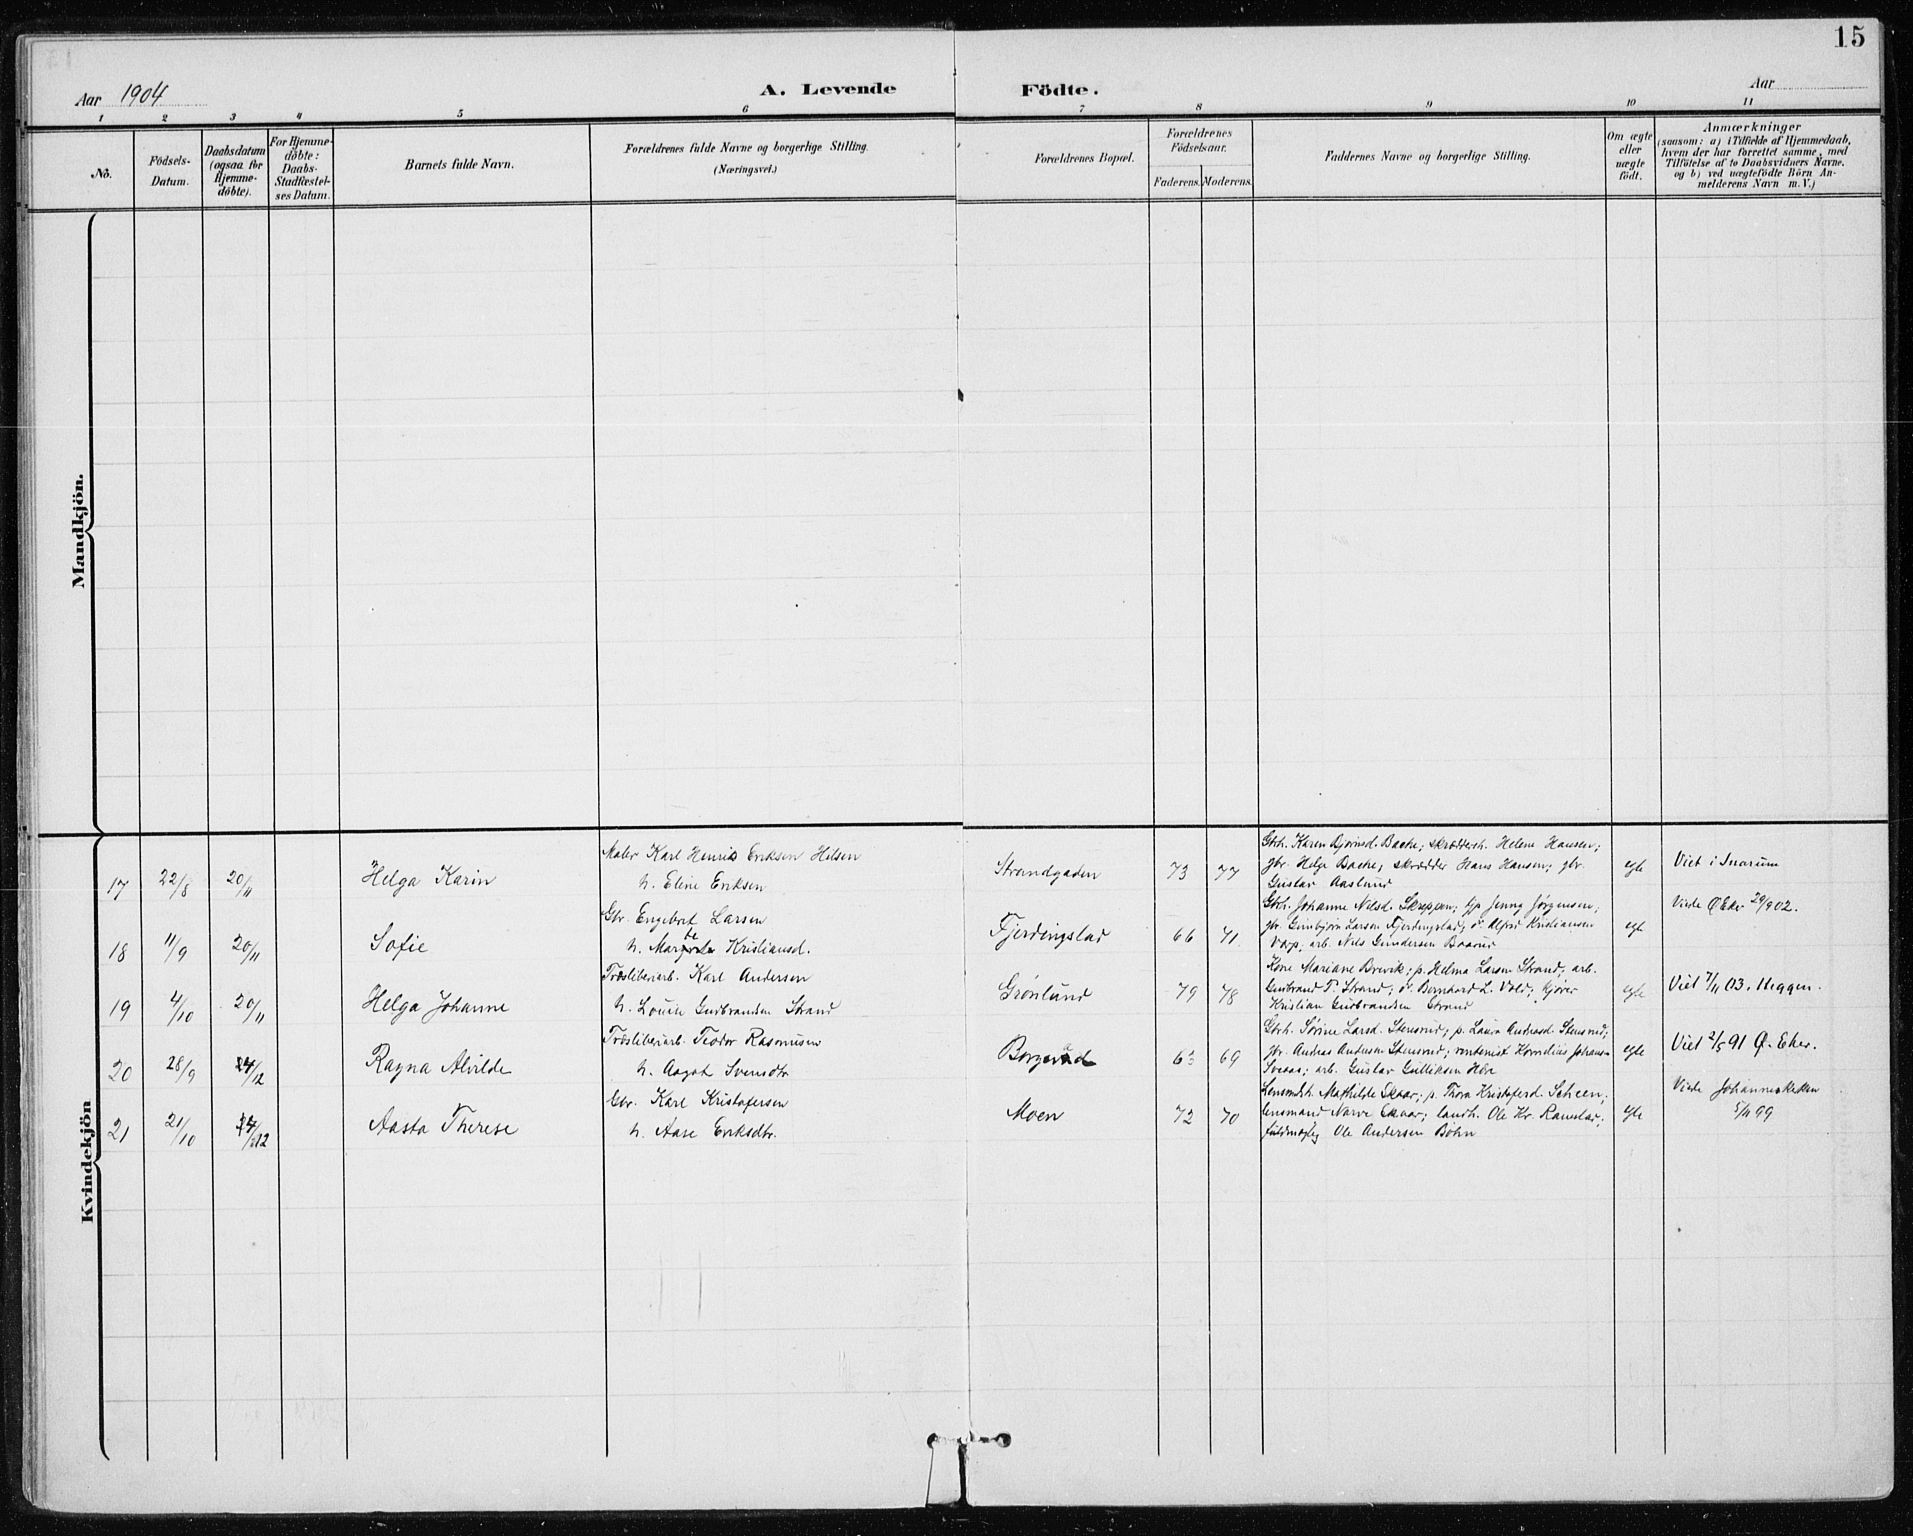 15
Aar 1904
A. Levende Födte.
Aar
1 2 3 4 5 6 7 8 9 10 11
No.
Födsels-Datum.
Daabsdatum (ogsaa for Hjemmedöbte).
For Hjemmedöbte: Daabs-Stadfæstelses Datum.
Barnets fulde Navn.
Forældrenes fulde Navne og borgerlige Stilling. (Næringsvei.)
Forældrenes Bopæl.
Forældrenes Födselsaar.
Faderens. Moderens.
Faddernes Navne og borgerlige Stilling.
Om ægte eller uægte födt.
Anmærkninger
(saasom: a) i Tilfælde af Hjemmedaab, hvem der har forrettet samme, med Tilföielse af to Daabsvidners Navne, og b) ved uægtefödte Börn Anmelderens Navn m. V.)
Mandkjön.
Kvindekjön
17 22/8 20/11 Helga Karin
Maler Karl Henrik Eriksen Hilsen
h. Eline Eriksen
Strandgaden 73 77
Gbrh. Karen Bjørnsd. Bache; skrædderh. Helene Hansen;
gbr. Helge Bache; skrædder Hans Hansen; gbr.
Gustav Aaslund
egte
Viet i Snarum
18 11/9 20/11 Sofie
Gbr. Engebret Larsen
h. Kristiansd.
Fjerdingstad 66 71
Gbrh. Johanne Nilsd. Skreppen; Jenny Jørgensen;
gbr. Gunbjørn Larsen Fjerdingstad; Alfred Kristiansen
arb. Nils Gundersen
egt
Viede Ø Eker 29/902.
19 4/10 20/11 Helga Johanne
Træsliberiarb. Karl Andersen
h. Louise Gudbrandsen Strand
Grønlund 79 78
Kone Mariane Brevik; p. Helma Larsen Strand; arb.
Gudbrand T. Strand; Bernhard L. Vold; kjører
Kristian Gudbrandsen Strand
egte
Viet 7/11 03. Heggen.
20 28/9 24/12 Ragna Alvilde
Træsliberiarb. Teodor Rasmusen
h. Aagot Svensdtr
63 69
Gbrh. Sørine Larsd. Stensrud; p. Laura Andreasd. Stensrud;
gbr. Andreas Andersen Stensrud; rentenist Kornelius Johans-
Sveaas; arb. Gustav Gulliksen
egte
Viet 2/5 91 Ø. Eker.
21 21/10 24/12 Aasta Therese
Gbr. Karl Kristofersen
h. Aase Eriksdtr.
Moen 72 70
Lensmandsh. Mathilde Skaar; p. Thora Kristoferd. Scheen;
lensmand Narve Skaar; landh. Ole Kr. Ramslar;
fuldmægtig Ole Andersen Bøhn
egte
Viede Johanneskirken
5/11 99